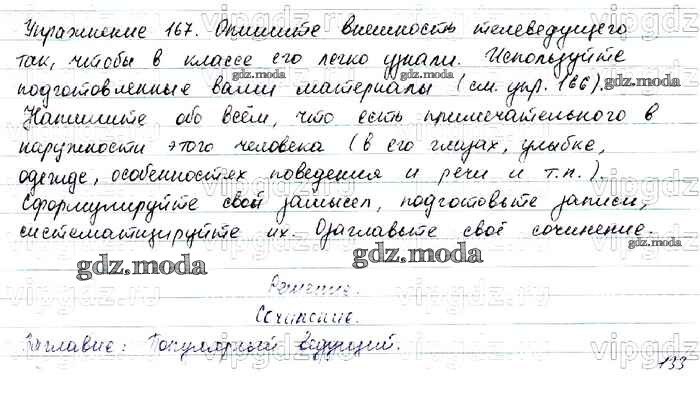 Упражнение 167. Опишите внешность телеведущего
так, чтобы в классе его легко узнали. Используйте
подготовленные вами материалы (см. упр. 166).
Напишите обо всём, что есть примечательного в
наружности этого человека (в его глазах, улыбке,
одежде, особенностях поведения и речи и т.п.).
Сформулируйте свой замысел, подготовьте записи,
систематизируйте их. Озаглавьте своё сочинение.
gdz.moda
gdz.moda
gdz.moda
gdz.moda
gdz.moda
Решение.
Сочинение.
Заглавие: Популярный ведущий.
133